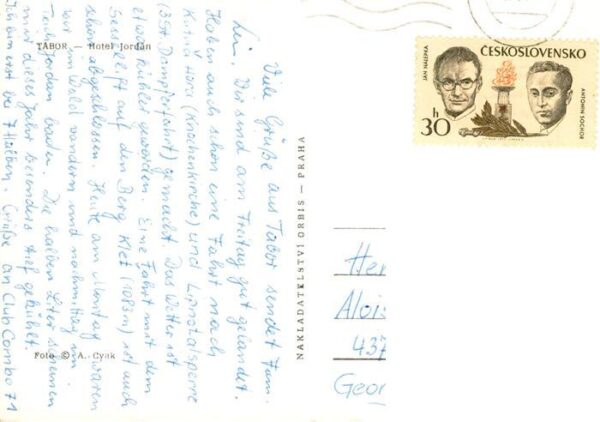 TÁBOR — Hotel Jordán
Viele Grüße aus Tabor sendet Fam.
Wir sind am Freitag gut gelandet.
Haben auch schon eine Fahrt nach
Kutná Hora (Knochenkirche) und Lipnotalsperre
(3 Std. Dampferfahrt) gemacht. Das Wetter ist
etwas kühler geworden. Eine Fahrt mit dem
Sessellift auf den Berg Kleť (1083m) ist auch
schon abgeschlossen. Heute am Montag waren
wir im Wald wandern und nachmittag im
Teich Jordan baden. Die halben Liter scheinen
mir dieses Jahr besonders tief gekühlt.
Ich bin erst bei 7 Halben. Grüße an Club Combo 71
Foto © A. Cvak
NAKLADATELSTVÍ ORBIS — PRAHA
ČESKOSLOVENSKO
JAN NÁLEPKA
ANTONÍN SOCHOR
30 h
Her
Alois
437
Geor